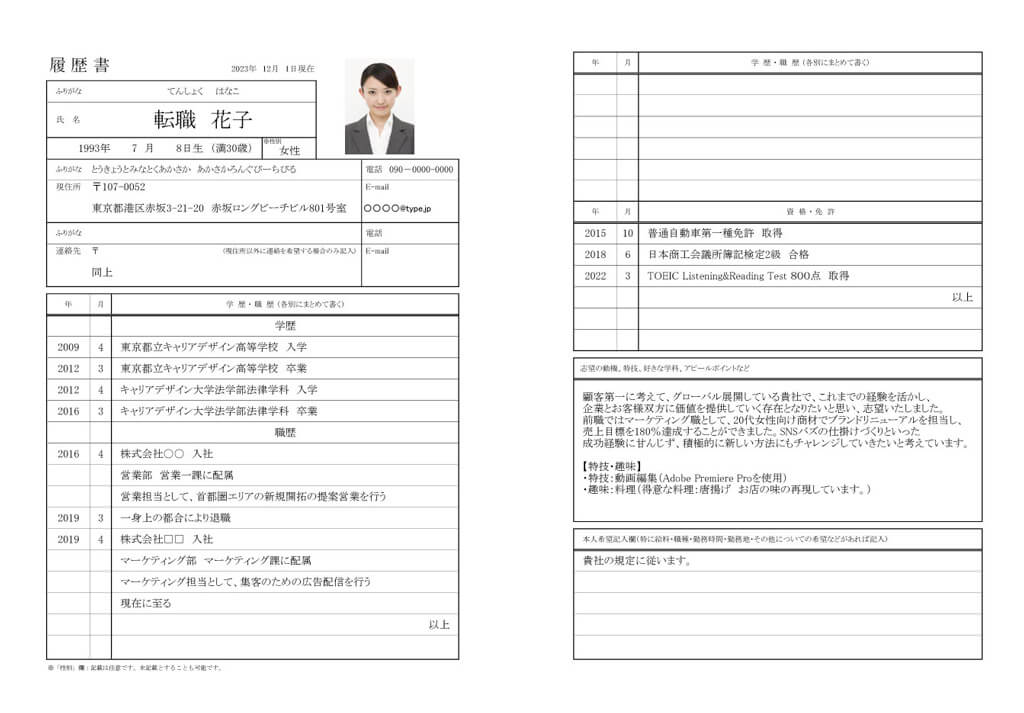 履歴書
2023年 12月 1日現在
ふりがな てんしょく はなこ
氏 名 転職 花子
1993年 7 月 8日生 (満30歳) ※性別 女性
ふりがな とうきょうとみなとくあかさか あかさかろんぐびーちびる 電話 090-0000-0000
現住所 〒107-0052 E-mail
東京都港区赤坂3-21-20 赤坂ロングビーチビル801号室 〇〇〇〇@type.jp
ふりがな 電話
連絡先 〒 (現住所以外に連絡を希望する場合のみ記入) E-mail
同上
年 月 学 歴・職 歴 (各別にまとめて書く)
学歴
2009 4 東京都立キャリアデザイン高等学校 入学
2012 3 東京都立キャリアデザイン高等学校 卒業
2012 4 キャリアデザイン大学法学部法律学科 入学
2016 3 キャリアデザイン大学法学部法律学科 卒業
職歴
2016 4 株式会社〇〇 入社
営業部 営業一課に配属
営業担当として、首都圏エリアの新規開拓の提案営業を行う
2019 3 一身上の都合により退職
2019 4 株式会社□□ 入社
マーケティング部 マーケティング課に配属
マーケティング担当として、集客のための広告配信を行う
現在に至る
以上
※「性別」欄:記載は任意です。未記載とすることも可能です。
年 月 学 歴・職 歴 (各別にまとめて書く)
年 月 資 格・免 許
2015 10 普通自動車第一種免許 取得
2018 6 日本商工会議所簿記検定2級 合格
2022 3 TOEIC Listening&Reading Test 800点 取得
以上
志望の動機、特技、好きな学科、アピールポイントなど
顧客第一に考えて、グローバル展開している貴社で、これまでの経験を活かし、
企業とお客様双方に価値を提供していく存在となりたいと思い、志望いたしました。
前職ではマーケティング職として、20代女性向け商材でブランドリニューアルを担当し、
売上目標を180%達成することができました。SNSバズの仕掛けづくりといった
成功経験に甘んじず、積極的に新しい方法にもチャレンジしていきたいと考えています。
【特技・趣味】
・特技:動画編集(Adobe Premiere Proを使用)
・趣味:料理(得意な料理:唐揚げ お店の味の再現しています。)
本人希望記入欄(特に給料・職種・勤務時間・勤務地・その他についての希望などがあれば記入)
貴社の規定に従います。